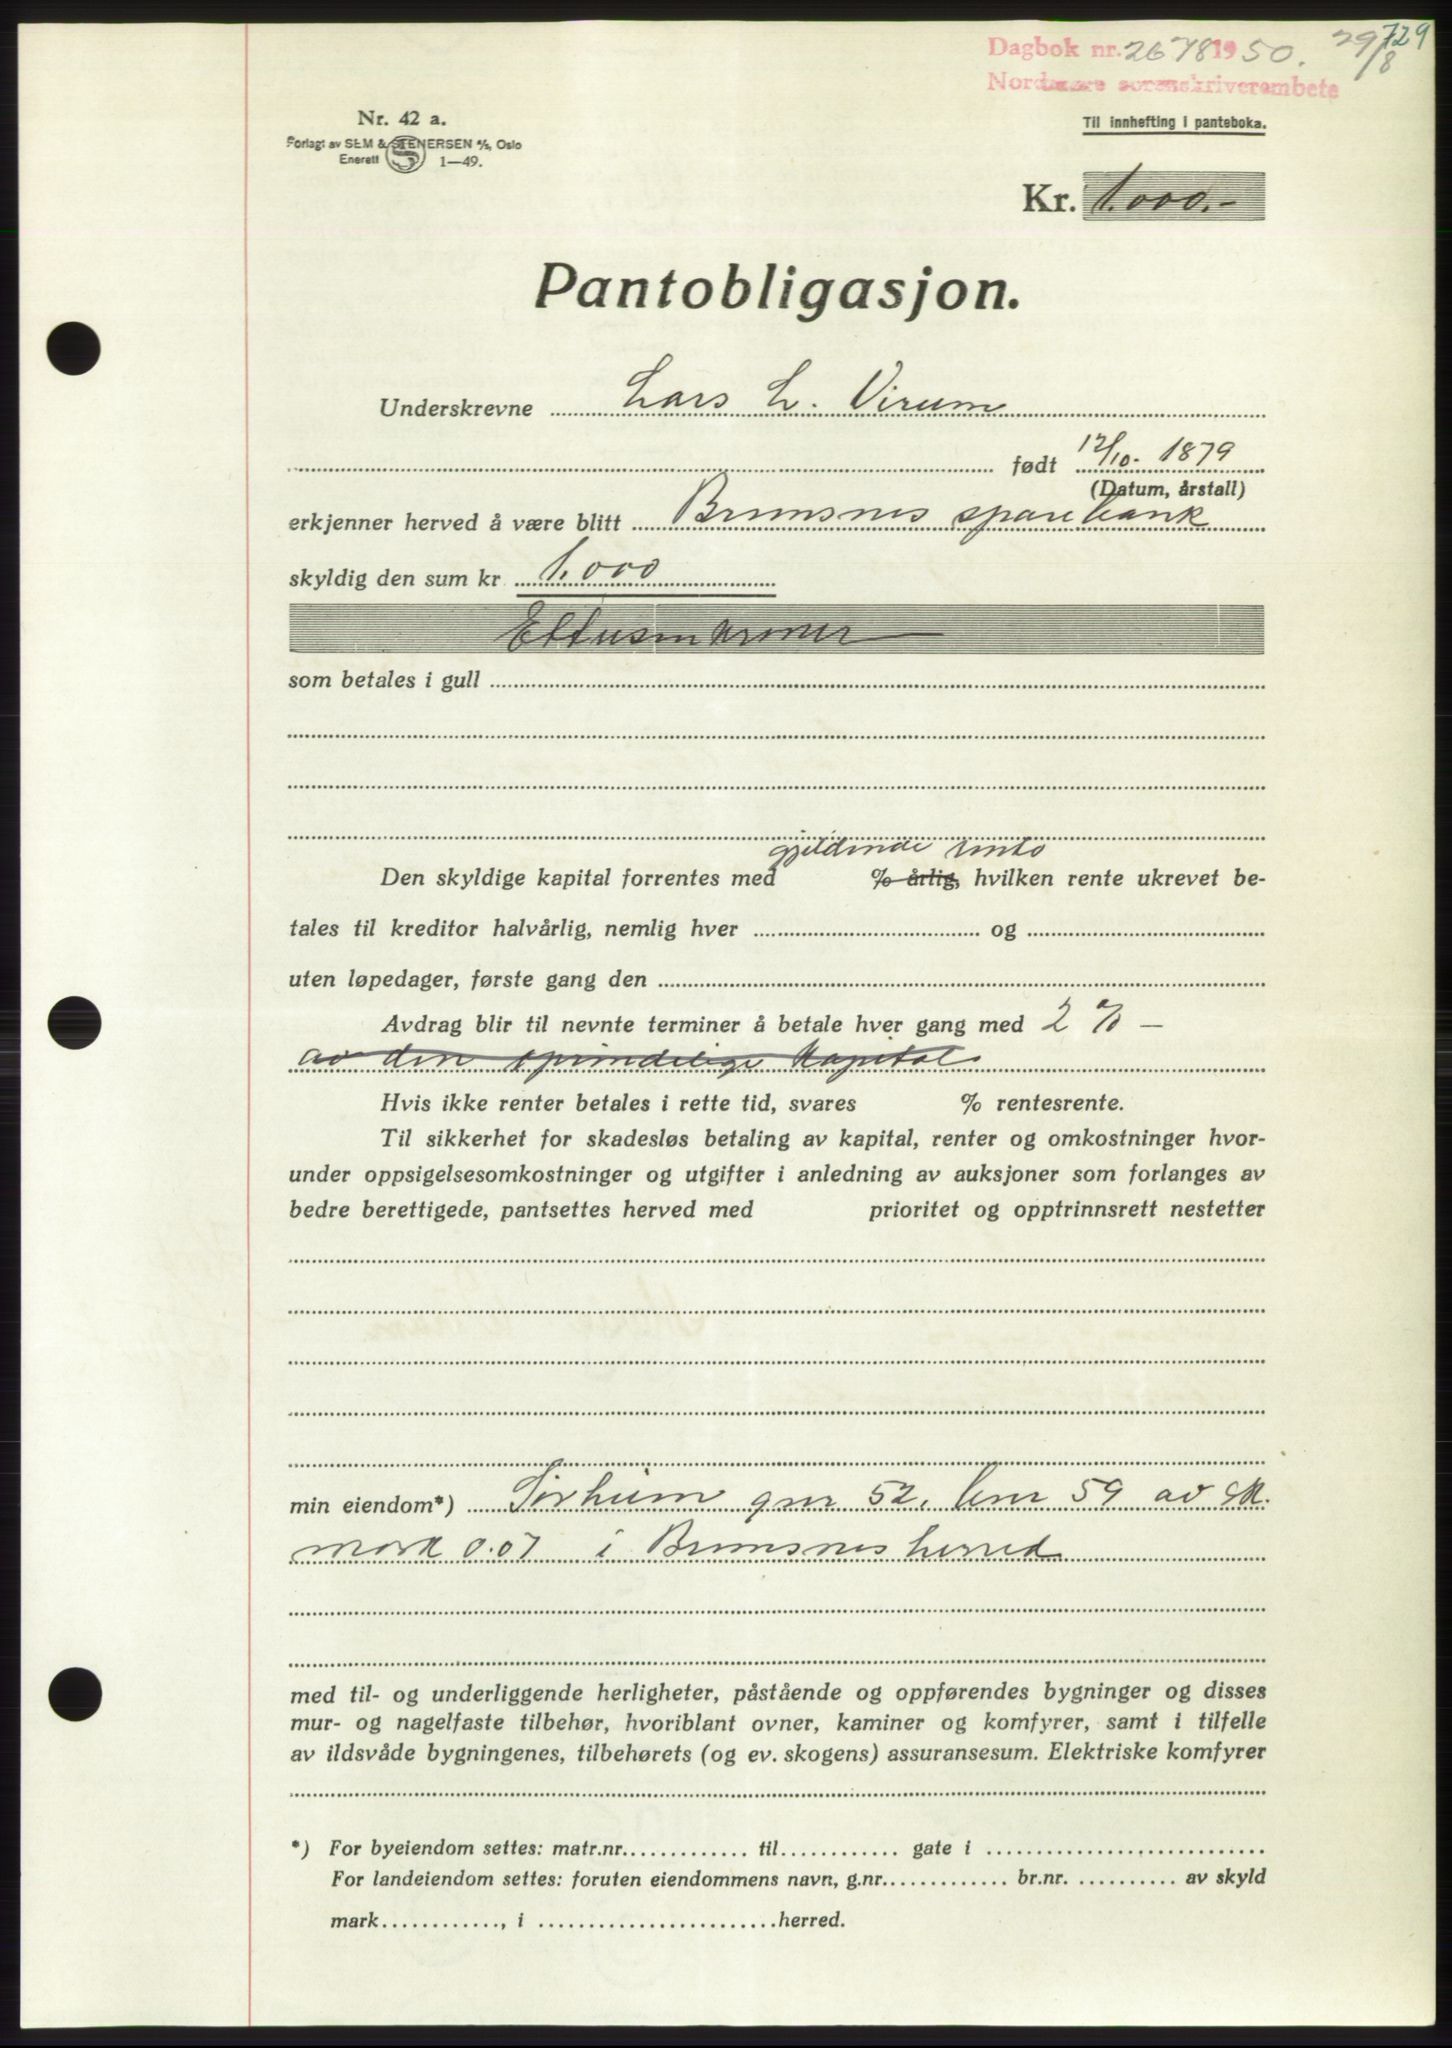 729
Dagbok nr. 2678 1950. 29/8
Nordmøre sorenskriverembete
Nr. 42 a.
Forlagt av SEM & STENERSEN A/S, Oslo
Enerett 1—49.
Til innhefting i panteboka.
Kr. 1.000.-
Pantobligasjon.
Underskrevne Lars L. Virum
født 12/10. 1879
(Datum, årstall)
erkjenner herved å være blitt Bremsnes sparebank
skyldig den sum kr 1.000
Ettusen kroner
som betales i gull
gjeldende rente
Den skyldige kapital forrentes med % årlig, hvilken rente ukrevet be-
tales til kreditor halvårlig, nemlig hver og
uten løpedager, første gang den
Avdrag blir til nevnte terminer å betale hver gang med 2 % —
av den oprindelige kapital
Hvis ikke renter betales i rette tid, svares % rentesrente.
Til sikkerhet for skadesløs betaling av kapital, renter og omkostninger hvor-
under oppsigelsesomkostninger og utgifter i anledning av auksjoner som forlanges av
bedre berettigede, pantsettes herved med prioritet og opptrinnsrett nestetter
min eiendom*) Sørheim gnr 52. bnr 59 av sk.
mark 0.07 i Bremsnes herred
med til- og underliggende herligheter, påstående og oppførendes bygninger og disses
mur- og nagelfaste tilbehør, hvoriblant ovner, kaminer og komfyrer, samt i tilfelle
av ildsvåde bygningenes, tilbehørets (og ev. skogens) assuransesum. Elektriske komfyrer
*) For byeiendom settes: matr.nr. til gate i
For landeiendom settes: foruten eiendommens navn, g.nr. br.nr. av skyld
mark , i herred.